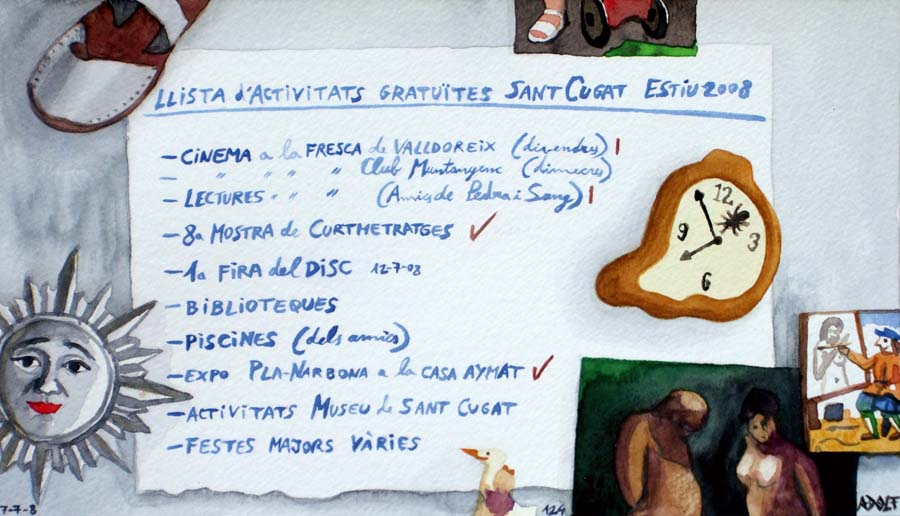 LLISTA d'ACTIVITATS GRATUÏTES SANT CUGAT ESTIU 2008
- CINEMA a la FRESCA de VALLDOREIX (divendres) |
- " " " " Club Muntanyenc (dimecres)
- LECTURES " " " (Amics de Pedra i Sang) |
- 8a MOSTRA de CURTMETRATGES ✓
- 1a FIRA del DISC 12-7-08
- BIBLIOTEQUES
- PISCINES (dels amics)
- EXPO PLA-NARBONA a la CASA AYMAT ✓
- ACTIVITATS MUSEU de SANT CUGAT
- FESTES MAJORS VÀRIES
12
9 3
6
7-7-8
124
ADOLF